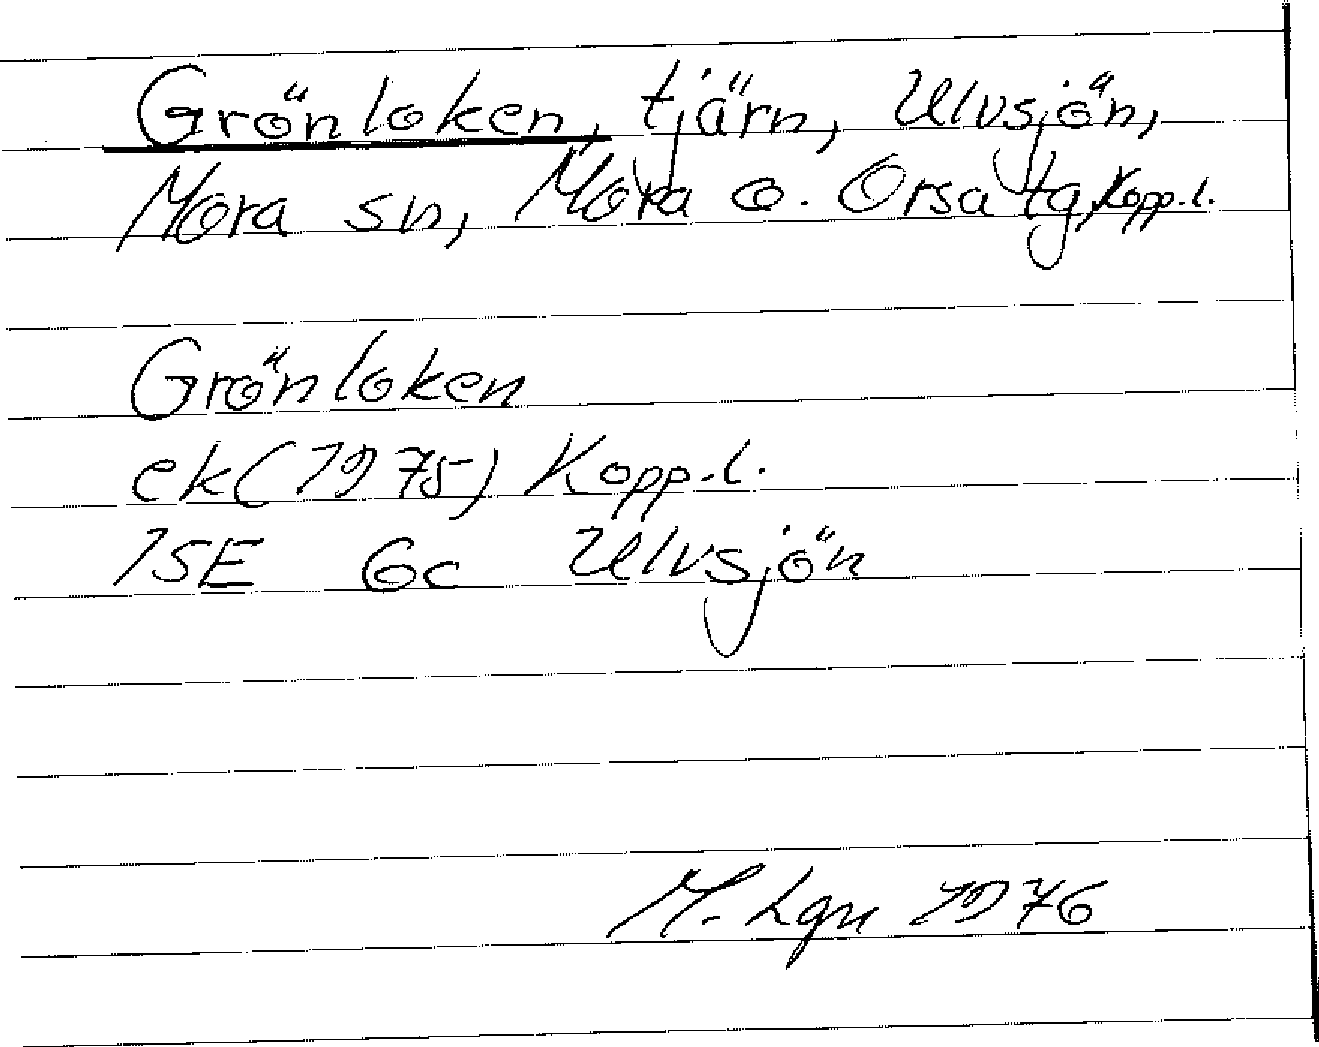 Grönloken, tjärn, Ulvsjön,
Mora sn, Mora o. Orsa tg, Kopp.l.
Grönloken
ek (1975) Kopp.l.
15E 6c Ulvsjön
M. Lgn 1976